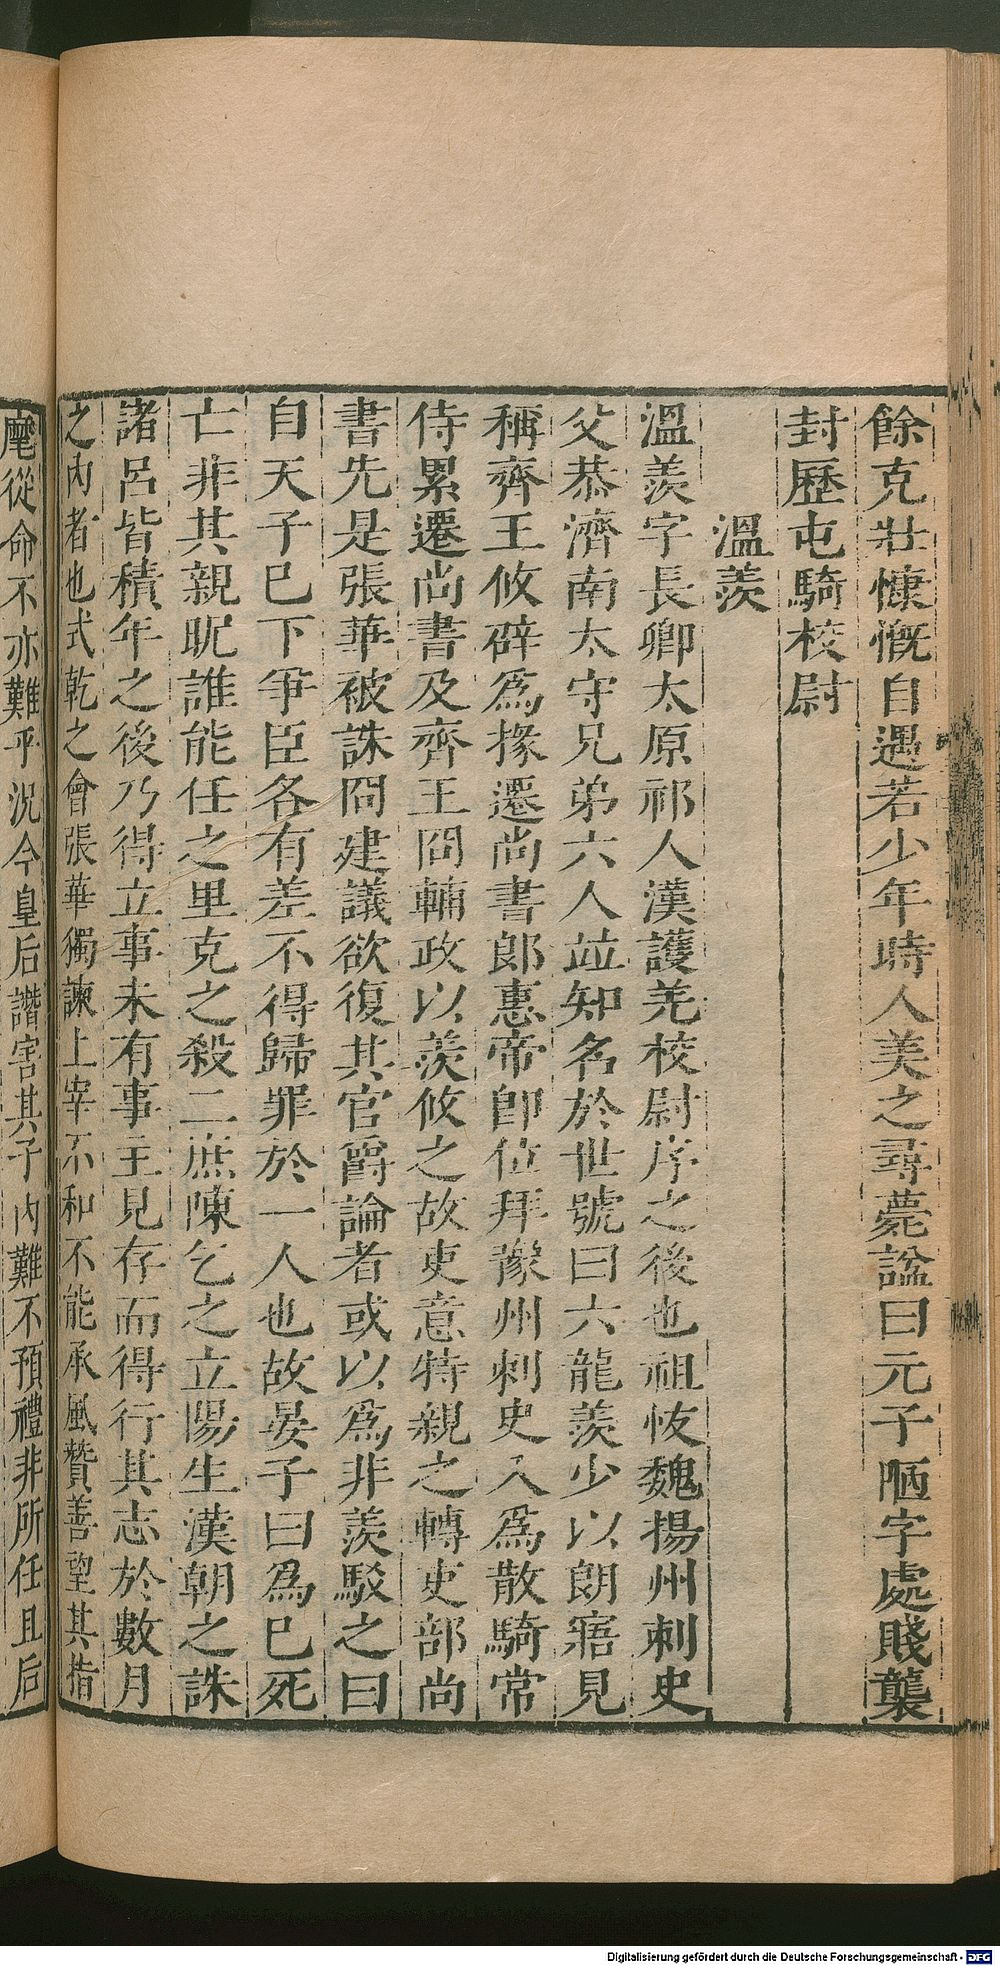 餘克壯慷慨自遇若少年時人美之尋薨諡曰元子陋字處賤襲
封歷屯騎校尉
溫羨
溫羨字長卿太原祁人漢護羌校尉序之後也祖恢魏揚州刺史
父恭濟南太守兄弟六人竝知名於世號曰六龍羨少以朗寤見
稱齊王攸辟爲掾遷尚書郎惠帝卽位拜豫州刺史入爲散騎常
侍累遷尚書及齊王冏輔政以羨攸之故吏意特親之轉吏部尚
書先是張華被誅冏建議欲復其官爵論者或以爲非羨駁之曰
自天子已下爭臣各有差不得歸罪於一人也故晏子曰爲已死
亡非其親昵誰能任之里克之殺二庶陳乞之立陽生漢朝之誅
諸呂皆積年之後乃得立事未有事主見存而得行其志於數月
之內者也式乾之會張華獨諫上宰不和不能承風贊善望其指
麾從命不亦難乎況今皇后譖害其子內難不預禮非所任且后
Digitalisierung gefördert durch die Deutsche Forschungsgemeinschaft - DFG